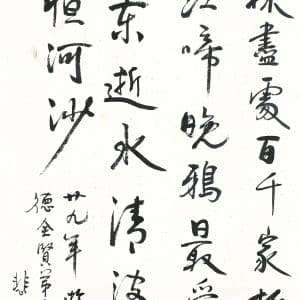 盡處百千家
啼晚鴉最愛
東逝水清波
恒河沙
廿九年
德全賢弟
悲